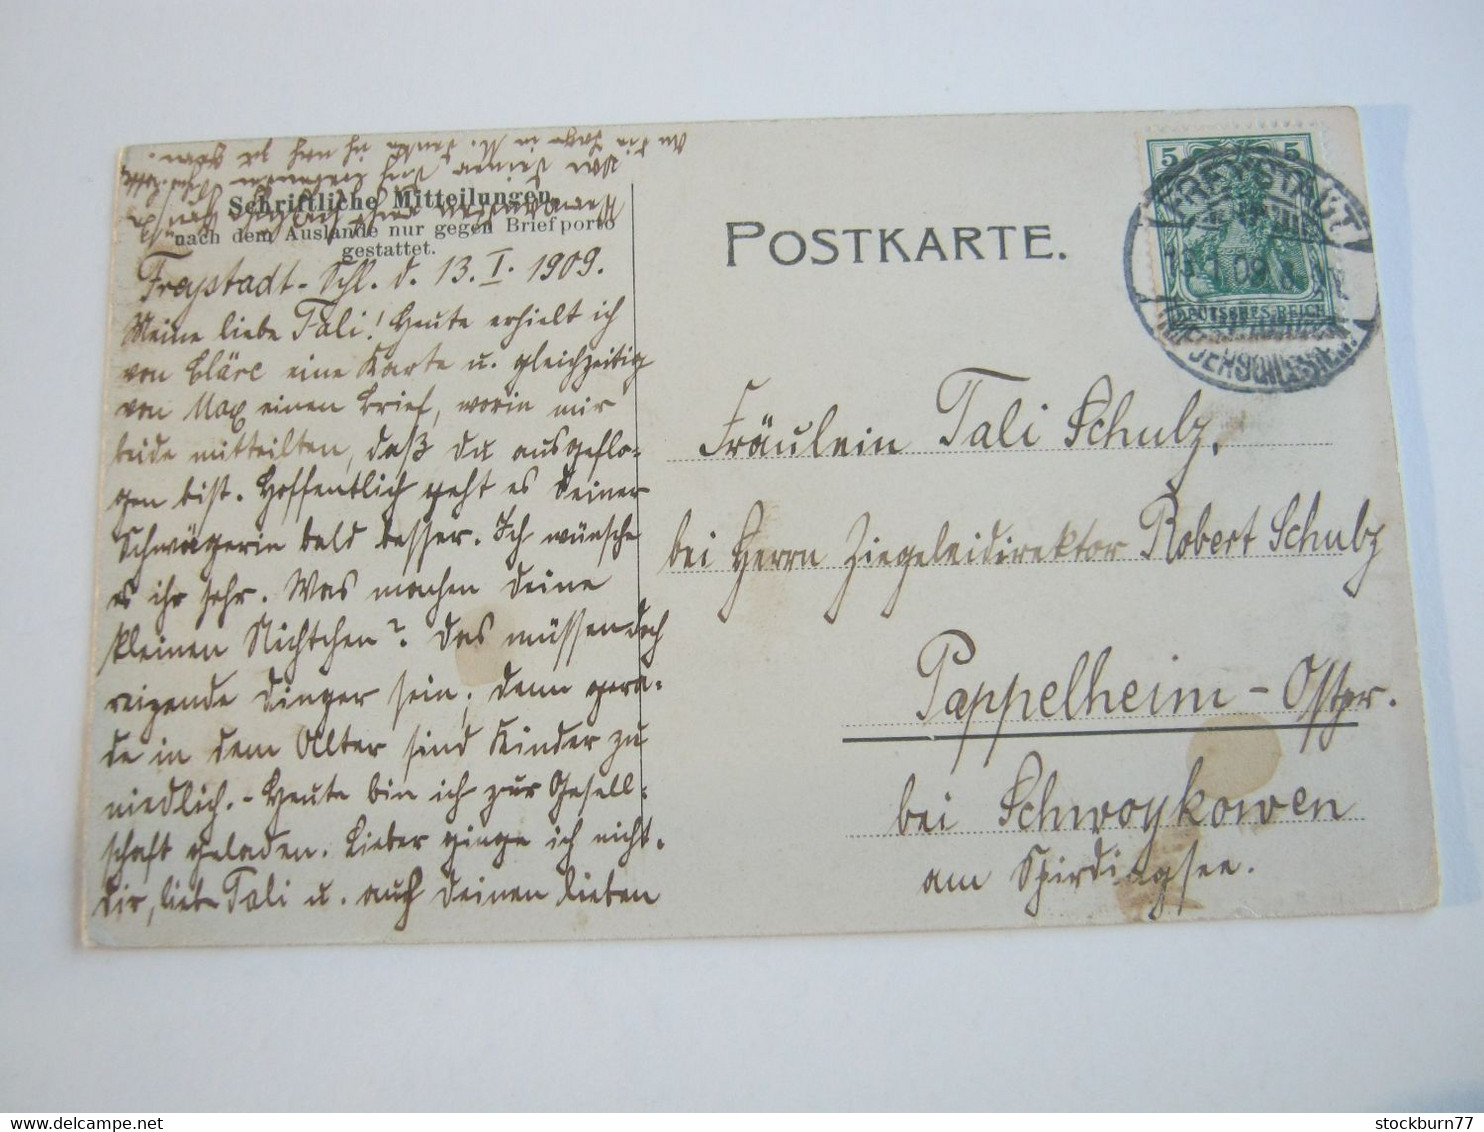 Schriftliche Mitteilungen
nach dem Auslande nur gegen Briefporto
gestattet.
Freystadt - Schl. d. 13. I. 1909.
Meine liebe Tali! Heute erhielt ich
von Cläre eine Karte u. gleichzeitig
von Max einen Brief, worin mir
beide mitteilten, daß du ausgeflo-
gen bist. Hoffentlich geht es deiner
Schwägerin bald besser. Ich wünsche
es ihr sehr. Was machen deine
kleinen Nichtchen? Das müssen doch
reizende Dinger sein; denn gera-
de in dem Alter sind Kinder zu
niedlich. - Heute bin ich zur Gesell-
schaft geladen. Lieber ginge ich nicht.
Dir, liebe Tali u. auch deinen lieben
An die Tage in M. denke ich noch so gern.
POSTKARTE.
5 5
FREYSTADT
13.1.09.
DEUTSCHES REICH
Fräulein Tali Schulz,
bei Herrn Ziegeleidirektor Robert Schulz
Pappelheim - Ostpr.
bei Schwoykowen
am Spirdingsee.
stockburn77